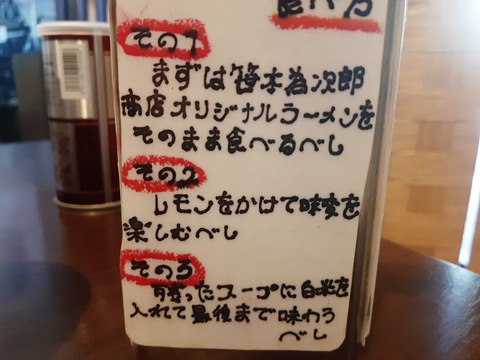 食べ方
その1
まずは笹木為次郎
商店オリジナルラーメンを
そのまま食べるべし
その2
レモンをかけて味変を
楽しむべし
その3
残ったスープに白米を
入れて最後まで味わう
べし